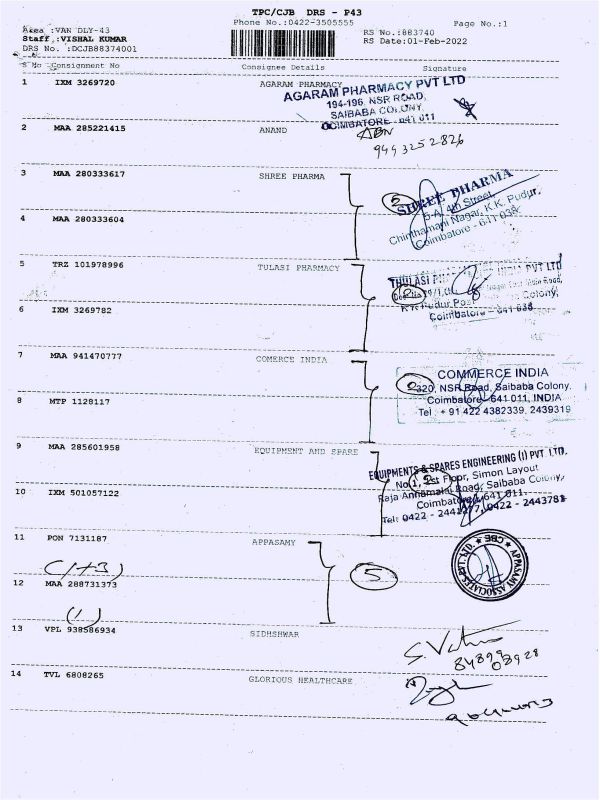 TPC/CJB DRS - P43
Phone No.:0422-3505555
Page No.:1
Area :VAN DLY-43
Staff :VISHAL KUMAR
DRS No. :DCJB88374001
RS No.:883740
RS Date:01-Feb-2022
S No Consignment No Consignee Details Signature
1 IXM 3269720 AGARAM PHARMACY
AGARAM PHARMACY PVT LTD
194-196, NSR ROAD,
SAIBABA COLONY,
COIMBATORE - 641 011
2 MAA 285221415 ANAND
9443252826
3 MAA 280333617 SHREE PHARMA
5
SHREE PHARMA
5-A, 4th Street,
Chinthamani Nagar, K.K. Pudur,
Coimbatore - 641 038
4 MAA 280333604
5 TRZ 101978996 TULASI PHARMACY
THULASI INDIA PVT LTD
Road,
Pudur Post Colony,
Coimbatore - 641 038
6 IXM 3269782
7 MAA 941470777 COMERCE INDIA
2
COMMERCE INDIA
320, NSR Road, Saibaba Colony,
Coimbatore - 641 011, INDIA
Tel : + 91 422 4382339, 2439319
8 MTP 1128117
9 MAA 285601958 EQUIPMENT AND SPARE
EQUIPMENTS & SPARES ENGINEERING (I) PVT. LTD.
No.1, 1st Floor, Simon Layout
Raja Annamalai Road, Saibaba Colony,
Coimbatore - 641 011.
Tel: 0422 - 0422 - 2443781
10 IXM 501057122
11 PON 7131187 APPASAMY
(1+3)
5
APPASAMY ASSOCIATES PVT. LTD. CBE
12 MAA 288731373
(1)
13 VPL 938586934 SIDHSHWAR
14 TVL 6808265 GLORIOUS HEALTHCARE